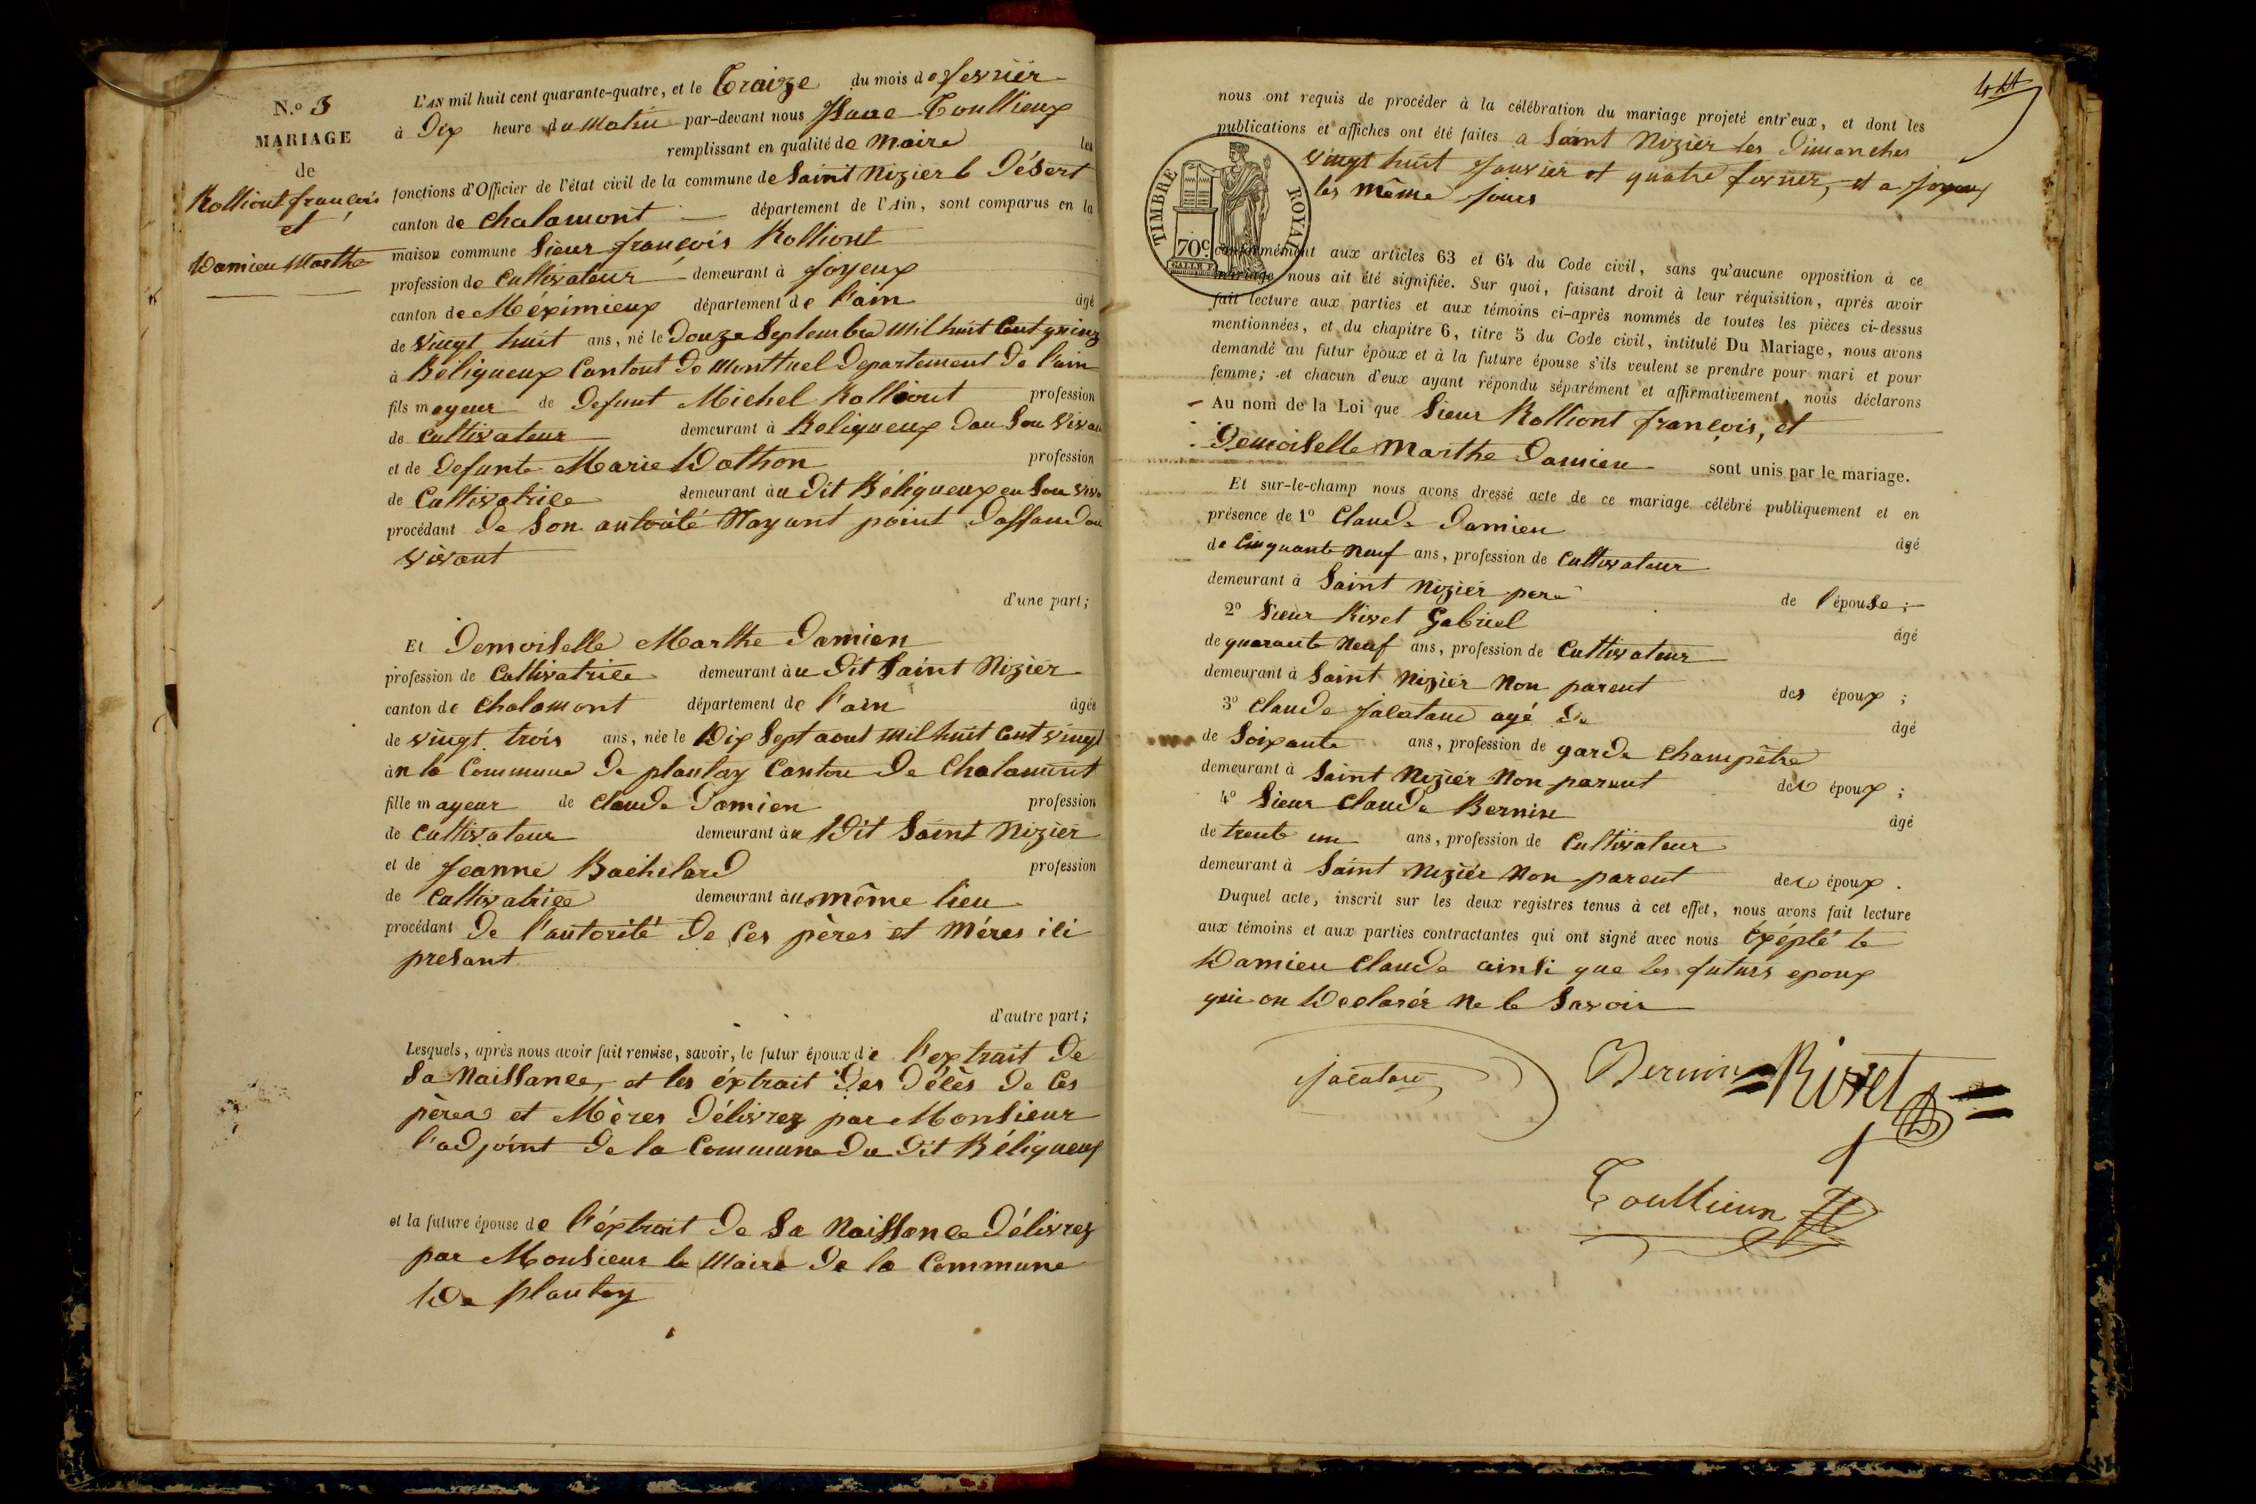 N.º 3
MARIAGE
de
Rolliont françois
et
Damien Marthe
L'AN mil huit cent quarante-quatre, et le Traize du mois de fevrier
à Dix heure du Matin par-devant nous Toullieux
remplissant en qualité de Maire les
fonctions d'Officier de l'état civil de la commune de Saint Nizier le Désert
canton de Chalamont département de l'Ain, sont comparus en la
maison commune Sieur françois Rolliont
profession de Cultivateur demeurant à Joyeux
canton de Méximieux département de l'ain âgé
de Vingt huit ans, né le Douze Septembre Mil huit Cent quinze
à Béligneux Cantont de Montluel Departement de l'ain
fils mayeur de Defunt Michel Rolliont profession
de Cultivateur demeurant à Beligneux Dan Son Vivan
et de Defunte Marie Dathon profession
de Cultivatrice demeurant àu Dit Béligneux en Son viva
procédant de Son autoité Nayant point Dassandan
vivant
d'une part;
Et Demoiselle Marthe Damien
profession de Cultivatrice demeurant àu Dit Saint Nizier
canton de Chalamont département de l'ain âgée
de vingt trois ans, née le Dix Sept aout mil huit Cent vingt
àn la Commune de plantay Canton de Chalamont
fille mayeur de Claude Damien profession
de Cultivateur demeurant àu Dit Saint Nizier
et de Jeanne Bachelard profession
de Cultivatrice demeurant àu même lieu
procédant de l'autorité de Ces pères et Méres ici
presant
d'autre part;
Lesquels, après nous avoir fait remise, savoir, le futur époux de l'extrait de
Sa Naissance, et les éxtrait des Décès de Ces
pères et Mères Délivrez par Monsieur
l'adjoint de la Commune du Dit Béligneux
et la future épouse de l'éxtrait de Sa Naissance Délivrez
par Monsieur le Maire de la Commune
De plantay
nous ont requis de procéder à la célébration du mariage projeté entr'eux, et dont les
publications et affiches ont été faites a Saint Nizier les Dimanches
vingt huit Janvier et quatre fevrier, et a Joyeux
les même jours
TIMBRE ROYAL
70c
conformément aux articles 63 et 64 du Code civil, sans qu'aucune opposition à ce
mariage nous ait été signifiée. Sur quoi, faisant droit à leur réquisition, après avoir
fait lecture aux parties et aux témoins ci-après nommés de toutes les pièces ci-dessus
mentionnées, et du chapitre 6, titre 5 du Code civil, intitulé Du Mariage, nous avons
demandé au futur époux et à la future épouse s'ils veulent se prendre pour mari et pour
femme; et chacun d'eux ayant répondu séparément et affirmativement, nous déclarons
Au nom de la Loi que Sieur Rolliont françois, et
Demoiselle Marthe Damien sont unis par le mariage.
Et sur-le-champ nous avons dressé acte de ce mariage célébré publiquement et en
présence de 1º Claude Damien âgé
de Cinquante Neuf ans, profession de Cultivateur
demeurant à Saint Nizier pere de l'épouse;
2º Sieur Rivet Gabriel âgé
de quarante Neuf ans, profession de Cultivateur
demeurant à Saint Nizier Non parent des époux;
3º Claude agé de âgé
de Soixante ans, profession de garde Champêtre
demeurant à Saint Nizier Non parent des époux;
4º Sieur Claude Bernin âgé
de trente un ans, profession de Cultivateur
demeurant à Saint Nizier Non parent des époux.
Duquel acte, inscrit sur les deux registres tenus à cet effet, nous avons fait lecture
aux témoins et aux parties contractantes qui ont signé avec nous Éxépté le
Damien Claude ainsi que les futurs epoux
qui on Declarér Ne le Savoir
Bernin Rivet
Toullieux